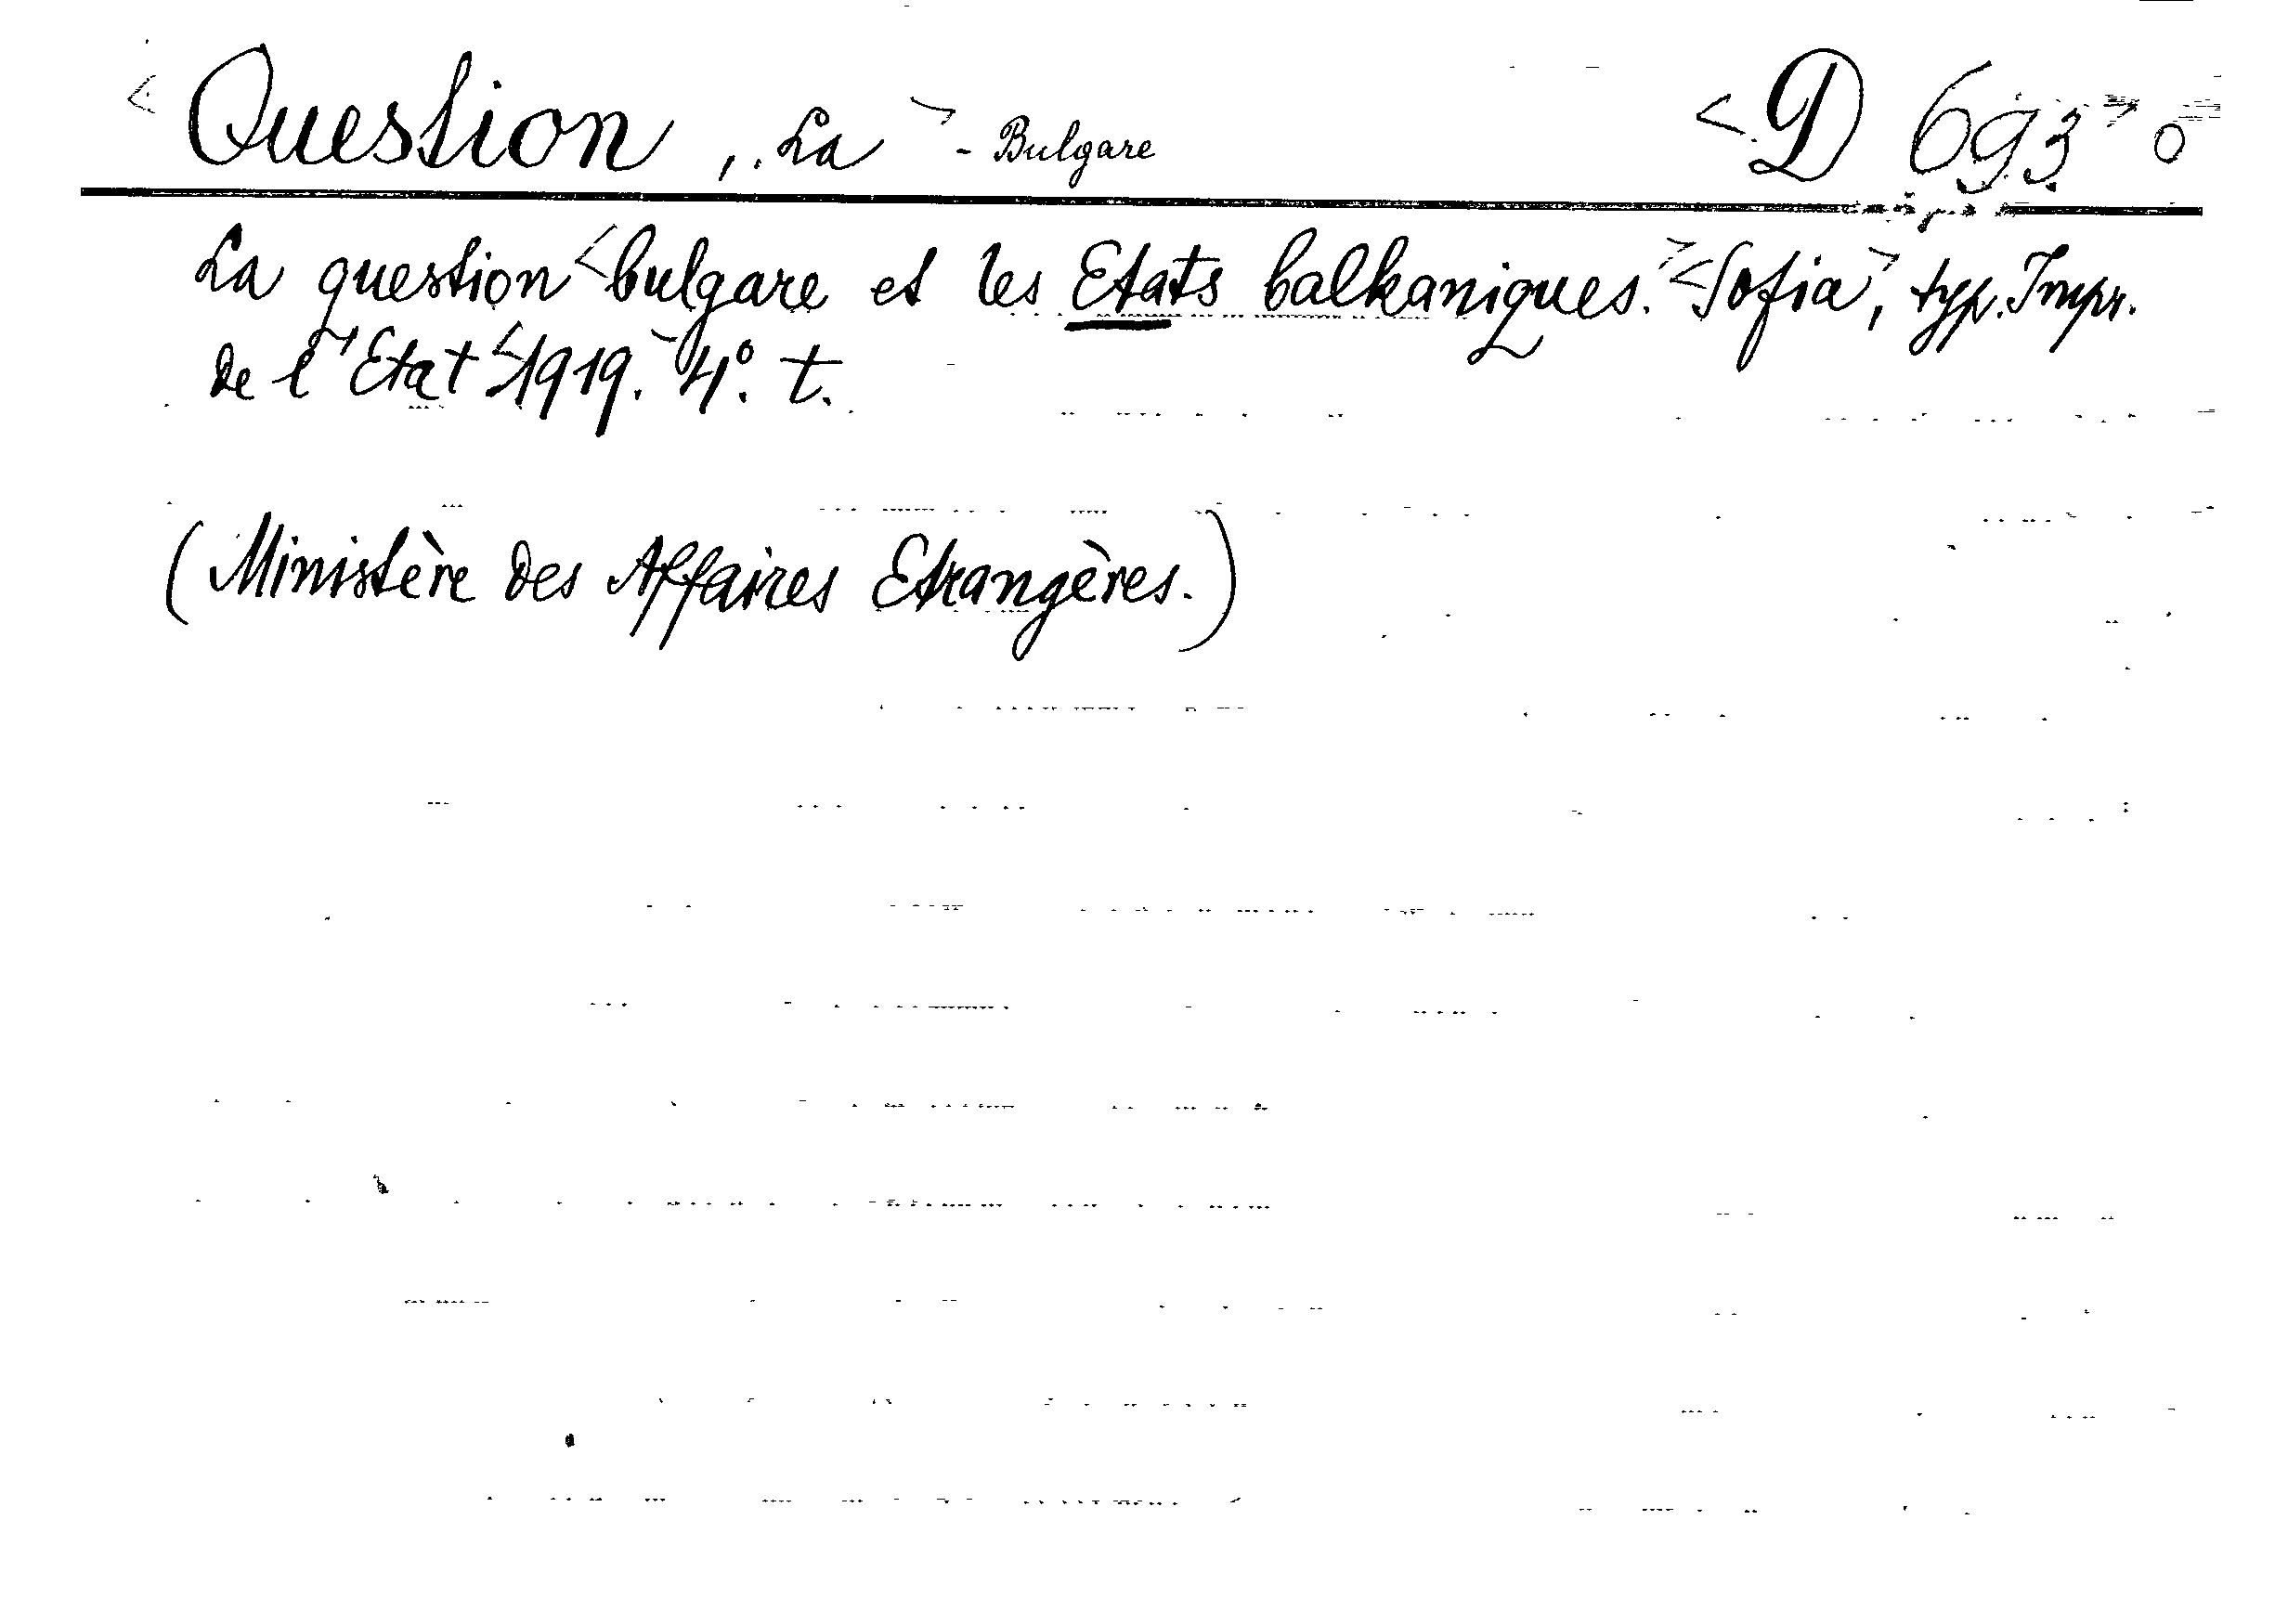 <Question, . La> - Bulgare <D 693> o
La question <bulgare et les Etats balkaniques.> <Sofia>, typ. Impr.
de l'Etat <1919.> 4°. t.
(Ministère des Affaires Etrangères.)